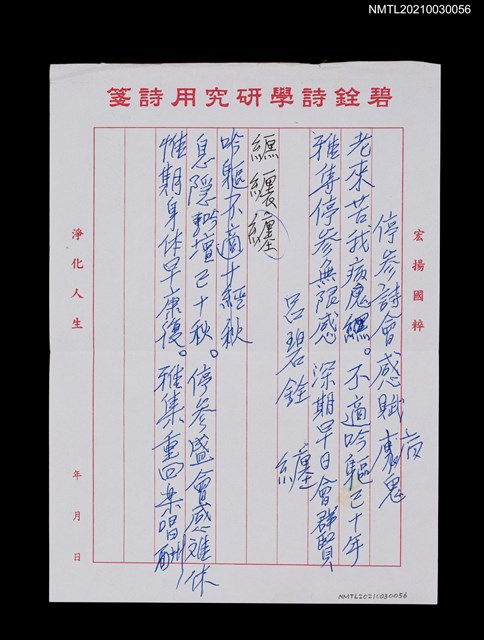 NMTL20210030056
碧銓詩學研究用詩箋
宏揚國粹
停參詩會感賦
病魔鬼
老來苦我病鬼纏。不適吟軀已十年
雅集停參無限感 深期早日會群賢
呂碧銓 纏
纏纏纏
吟軀不適十經秋
息隱吟壇已十秋。停參盛會感難休
惟期身体早康復。雅集重回樂唱酬
淨化人生
年 月 日
NMTL20210030056